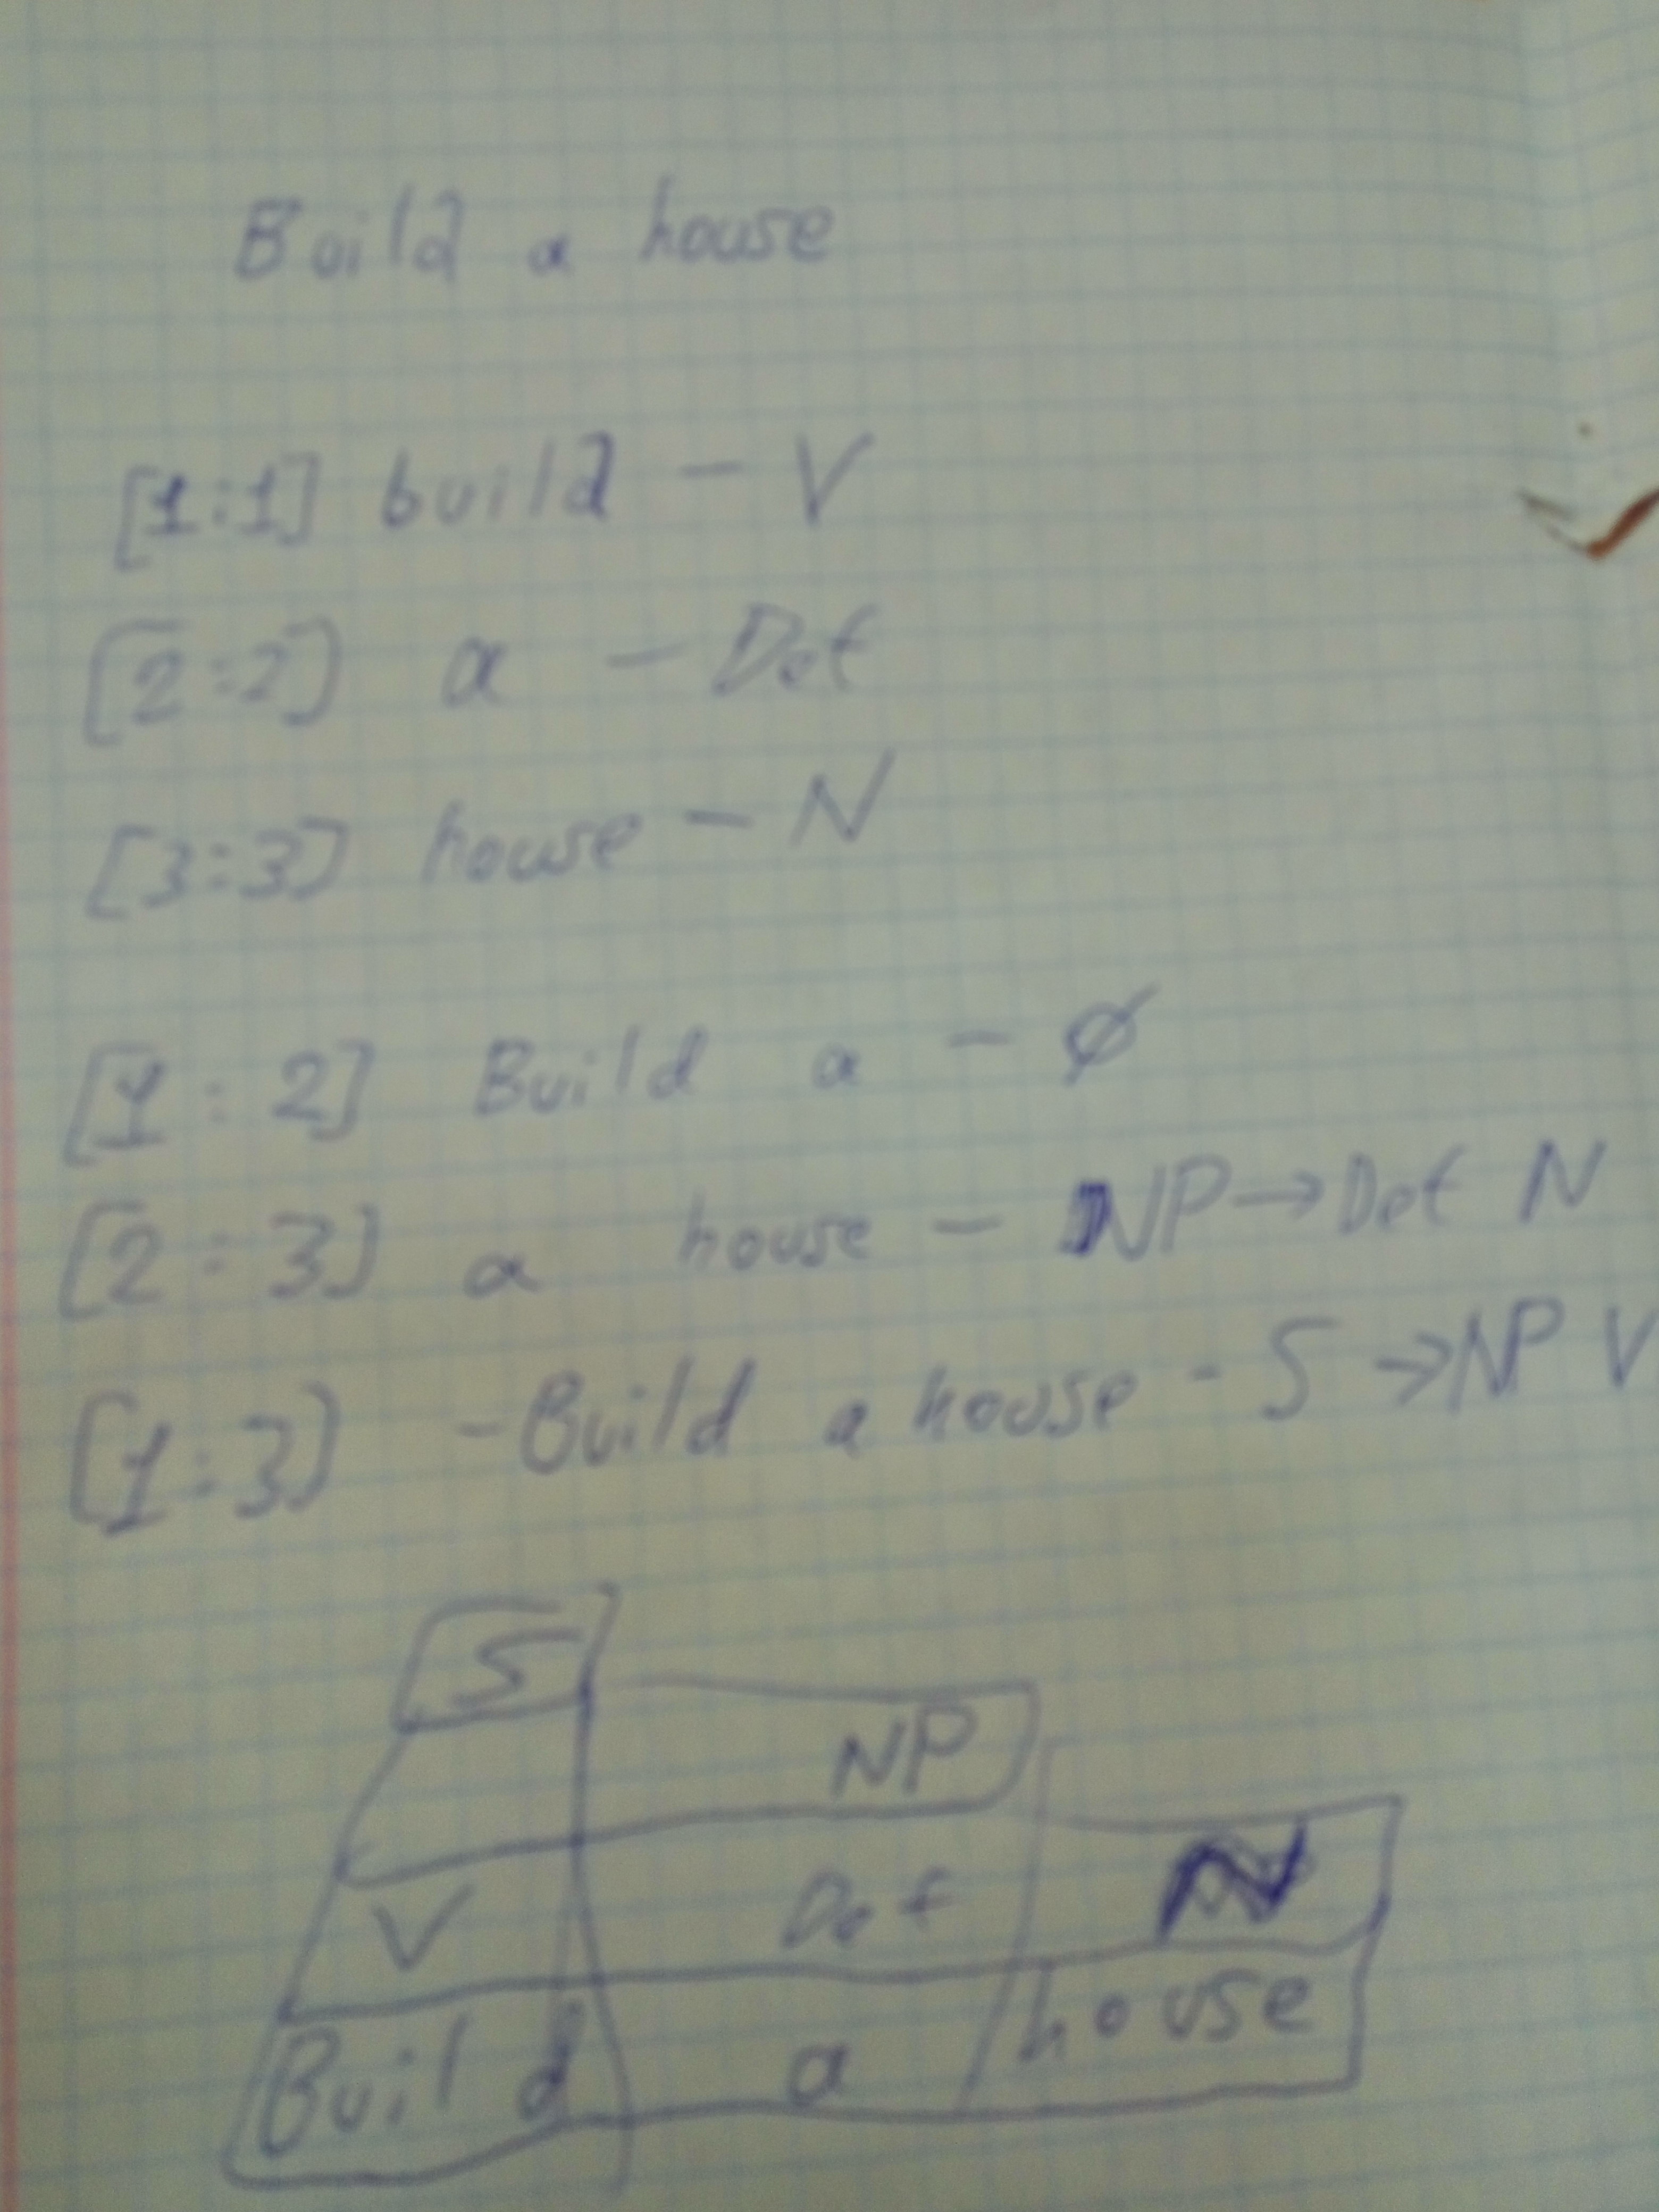 Build a house
[1:1] build - V
[2:2] a - Det
[3:3] house - N
[1:2] Build a - ∅
[2:3] a house - NP → Det N
[1:3] - Build a house - S → NP V
S
NP
V Det N
Build a house